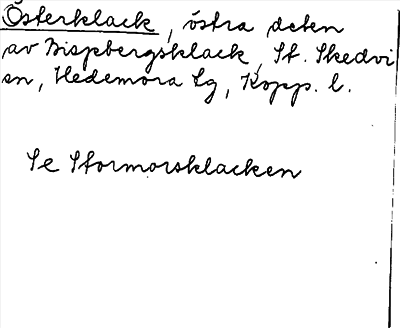 Österklack, östra delen
av Bispbergsklack, St. Skedvi
sn, Hedemora tg, Kopp. l.
Se Stormorsklacken